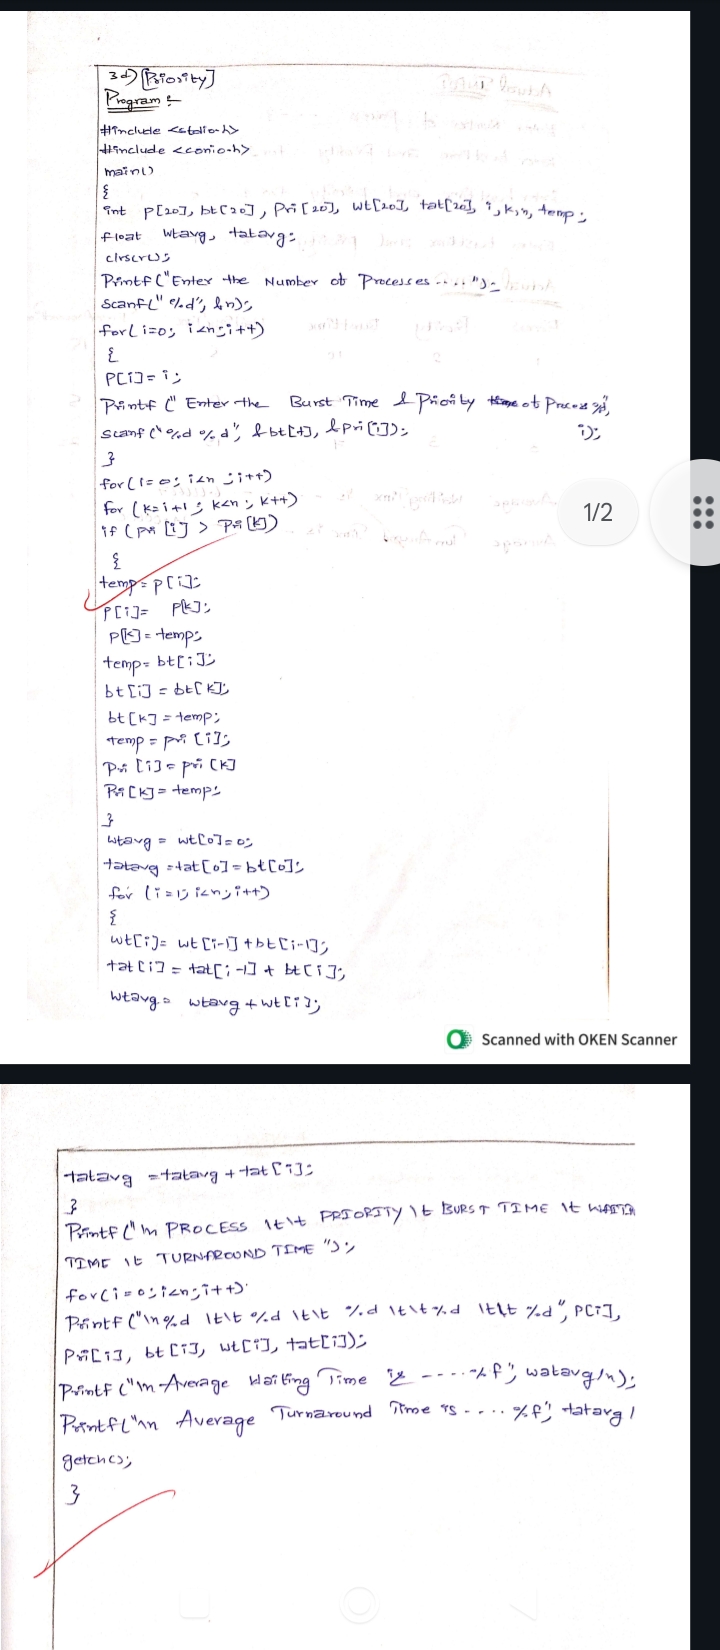 3d) [Priority]
Program :-
#include <stdio.h>
#include <conio.h>
main()
{
int p[20], bt[20], pri[20], wt[20], tat[20], i, k, n, temp;
float wtavg, tatavg;
clrscr();
Printf("Enter the Number of Processes ....");
Scanf("%d", &n);
for(i=0; i<n; i++)
{
P[i]= i;
Printf(" Enter the Burst Time & Priority of Process %d",
i);
scanf("%d %d", &bt[i], &pri[i]);
}
for(i=0; i<n ; i++)
for (k=i+1; k<n; k++)
if (pri [i] > Pri[k])
{
temp=p[i];
P[i]= P[k];
P[k]=temp;
temp= bt[i];
bt[i] = bt[k];
bt[k] =temp;
temp = pri [i];
Pri [i]= pri [k]
Pri[k]= temp;
}
wtavg = wt[0]=0;
tatavg =tat[0]=bt[0];
for (i=1; i<n; i++)
{
wt[i]= wt[i-1]+bt[i-1];
tat[i] = tat[i-1] + bt[i];
wtavg = wtavg+wt[i];
Scanned with OKEN Scanner
1/2
tatavg =tatavg + tat[i];
}
Printf("\n PROCESS \t\t PRIORITY \t BURST TIME \t
TIME \t TURNAROUND TIME ");
for(i=0; i<n; i++)
Printf("\n%d \t\t %d \t\t %d \t\t %d \t\t %d", P[i],
Pri[i], bt[i], wt[i], tat[i]);
Printf("\n Average Waiting Time is ----%f", watavg/n);
Printf("\n Average Turnaround Time is ....%f", tatavg/
getch();
}